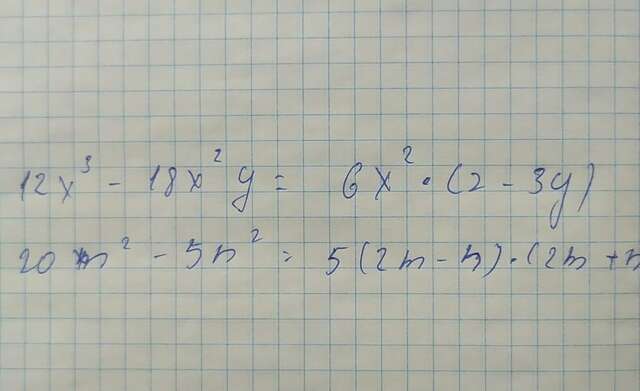 12x³ - 18x²y = 6x² · (2 - 3y)
20 m² - 5n² = 5(2m - n) · (2m + n